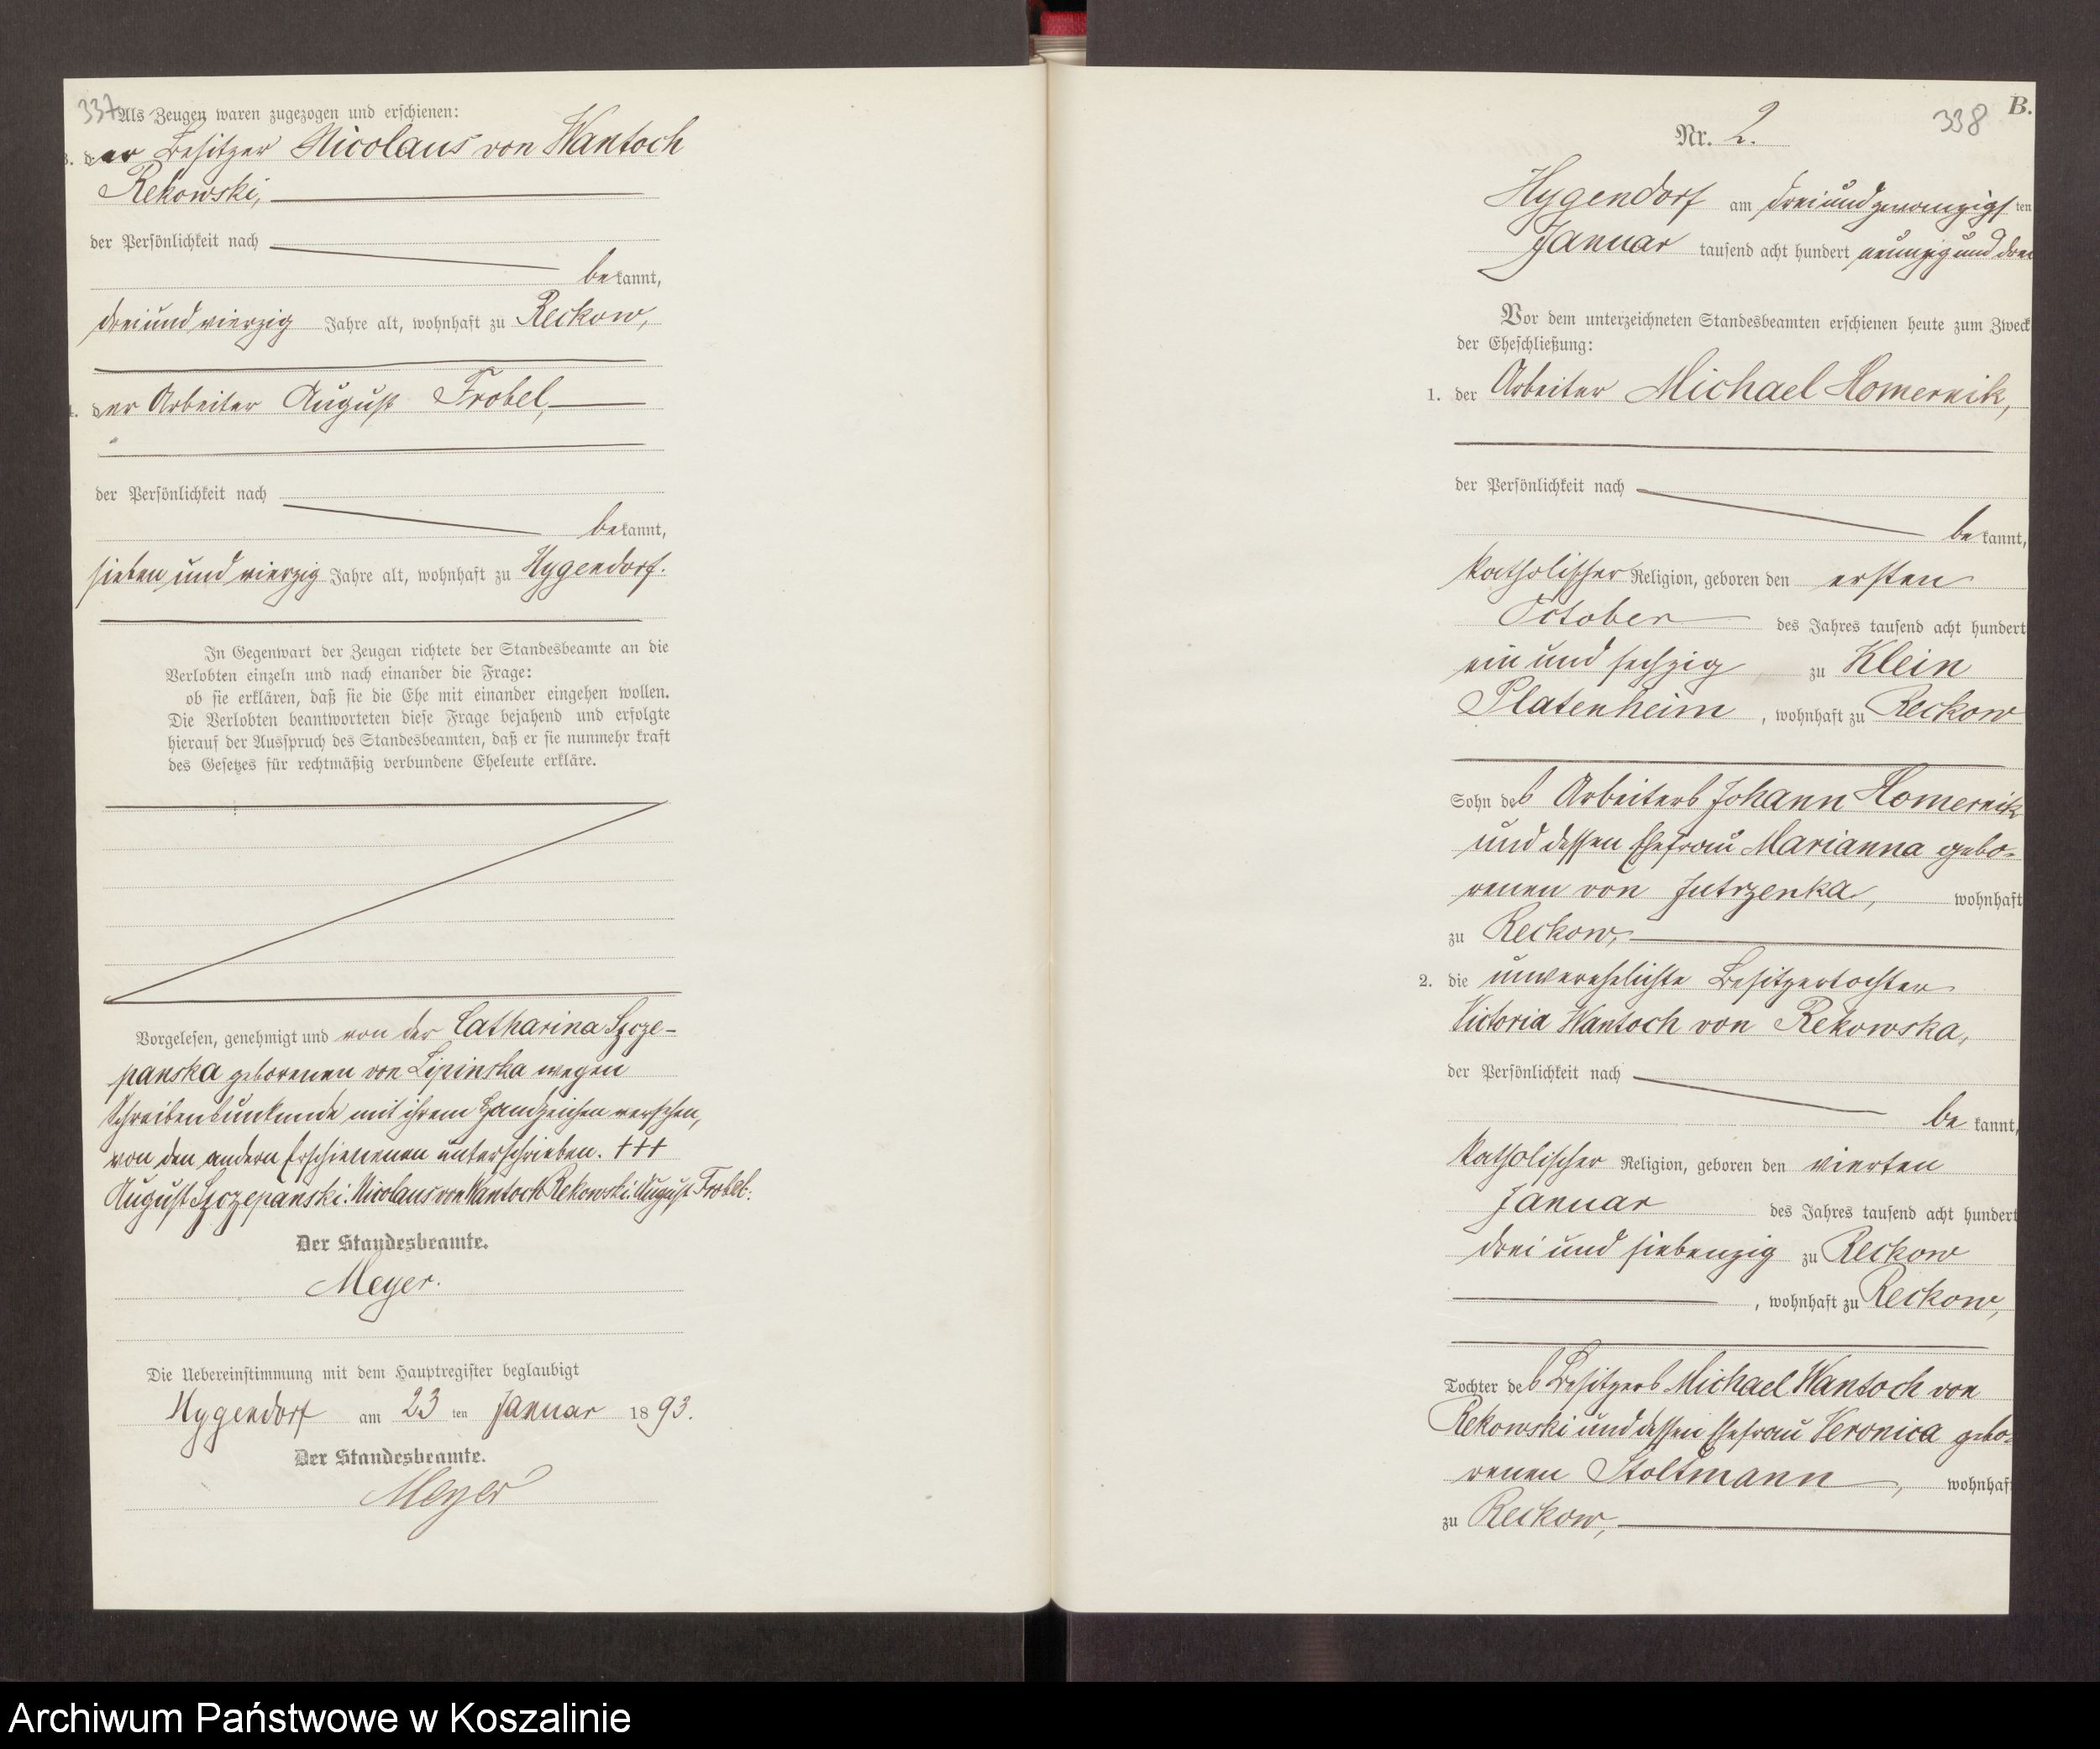 337
Als Zeugen waren zugezogen und erschienen:
3. der Besitzer Nicolaus von Wantoch
Rekowski,
der Persönlichkeit nach
bekannt,
dreiundvierzig Jahre alt, wohnhaft zu Reckow,
4. der Arbeiter August Frobel,
der Persönlichkeit nach
bekannt,
sieben und vierzig Jahre alt, wohnhaft zu Hygendorf.
In Gegenwart der Zeugen richtete der Standesbeamte an die
Verlobten einzeln und nach einander die Frage:
ob sie erklären, daß sie die Ehe mit einander eingehen wollen.
Die Verlobten beantworteten diese Frage bejahend und erfolgte
hierauf der Ausspruch des Standesbeamten, daß er sie nunmehr kraft
des Gesetzes für rechtmäßig verbundene Eheleute erkläre.
Vorgelesen, genehmigt und von der Catharina Szcze-
panska geborenen von Lipinska wegen
Schreibensunkunde mit ihrem Handzeichen versehen,
von den andern Erschienenen unterschrieben. +++
August Szczepanski. Nicolaus von Wantoch Rekowski. August Frobel.
Der Standesbeamte.
Meyer.
Die Uebereinstimmung mit dem Hauptregister beglaubigt
Hygendorf am 23 ten Januar 1893.
Der Standesbeamte.
Meyer
B.
338
Nr. 2.
Hygendorf am dreiundzwanzigsten
Januar tausend acht hundert neunzig und drei
Vor dem unterzeichneten Standesbeamten erschienen heute zum Zweck
der Eheschließung:
1. der Arbeiter Michael Homernik,
der Persönlichkeit nach
bekannt,
katholischer Religion, geboren den ersten
October des Jahres tausend acht hundert
ein und sechzig zu Klein
Platenheim, wohnhaft zu Reckow
Sohn des Arbeiters Johann Homernik
und dessen Ehefrau Marianna gebo-
renen von Jutrzenka, wohnhaft
zu Reckow,
2. die unverehelichte Besitzertochter
Victoria Wantoch von Rekowska,
der Persönlichkeit nach
bekannt,
katholischer Religion, geboren den vierten
Januar des Jahres tausend acht hundert
drei und siebenzig zu Reckow
, wohnhaft zu Reckow,
Tochter des Besitzers Michael Wantoch von
Rekowski und dessen Ehefrau Veronica gebo-
renen Stoltmann, wohnhaft
zu Reckow,
Archiwum Państwowe w Koszalinie